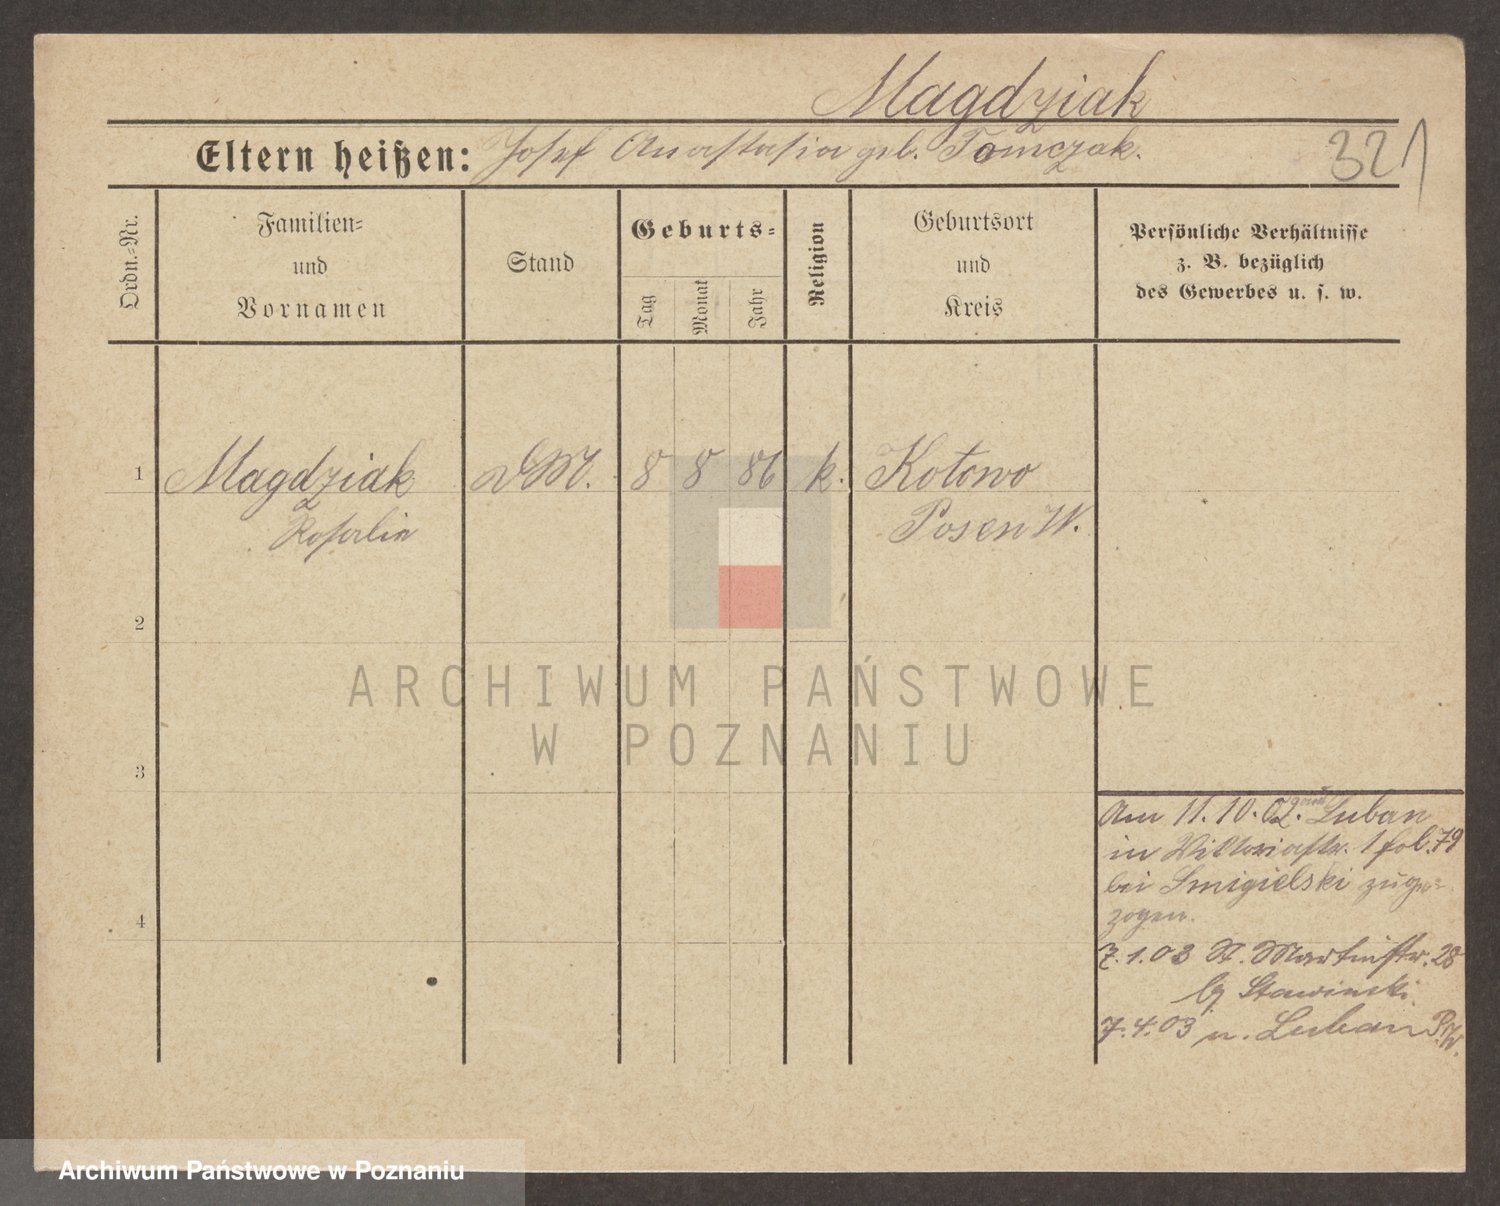 Magdziak
Eltern heißen: Josef Anastasia geb. Tomczak.
321
Ordn.-Nr.
Familien-
und
Vornamen
Stand
Geburts-
Tag
Monat
Jahr
Religion
Geburtsort
und
Kreis
Persönliche Verhältnisse
z. B. bezüglich
des Gewerbes u. s. w.
1 Magdziak DM. 8 8 86 k. Kotowo
Rosalie Posen W.
2
3
4
Am 11. 10. 02. Luban
in Viktoriastr. 1 fol. 79
bei Smigielski zuge-
zogen.
7. 1. 03 St. Martinstr. 28
Stawinski
7. 4. 03 n. Luban P/W.
ARCHIWUM PAŃSTWOWE
W POZNANIU
Archiwum Państwowe w Poznaniu